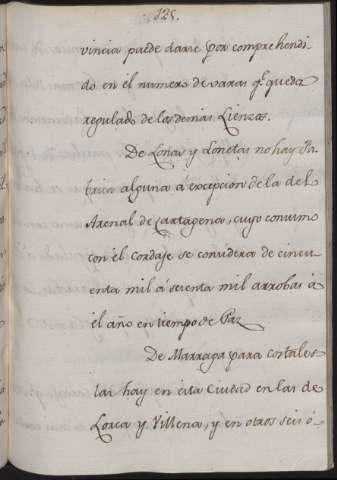 125.
vincia puede darse por comprehendi-
do en el numero de varas q.e queda
regulado de las demas Lienzas.
De Lonas y Lonetas no hay Fa-
brica alguna á excepcion de la del
Arsenal de Cartagena, cuyo consumo
con el Cordaje se considera de cincu-
enta mil á sesenta mil arrobas á
el año en tiempo de Paz
De Marraga para costales
las hay en esta Ciudad en las de
Lorca y Villena, y en otros seis ó-